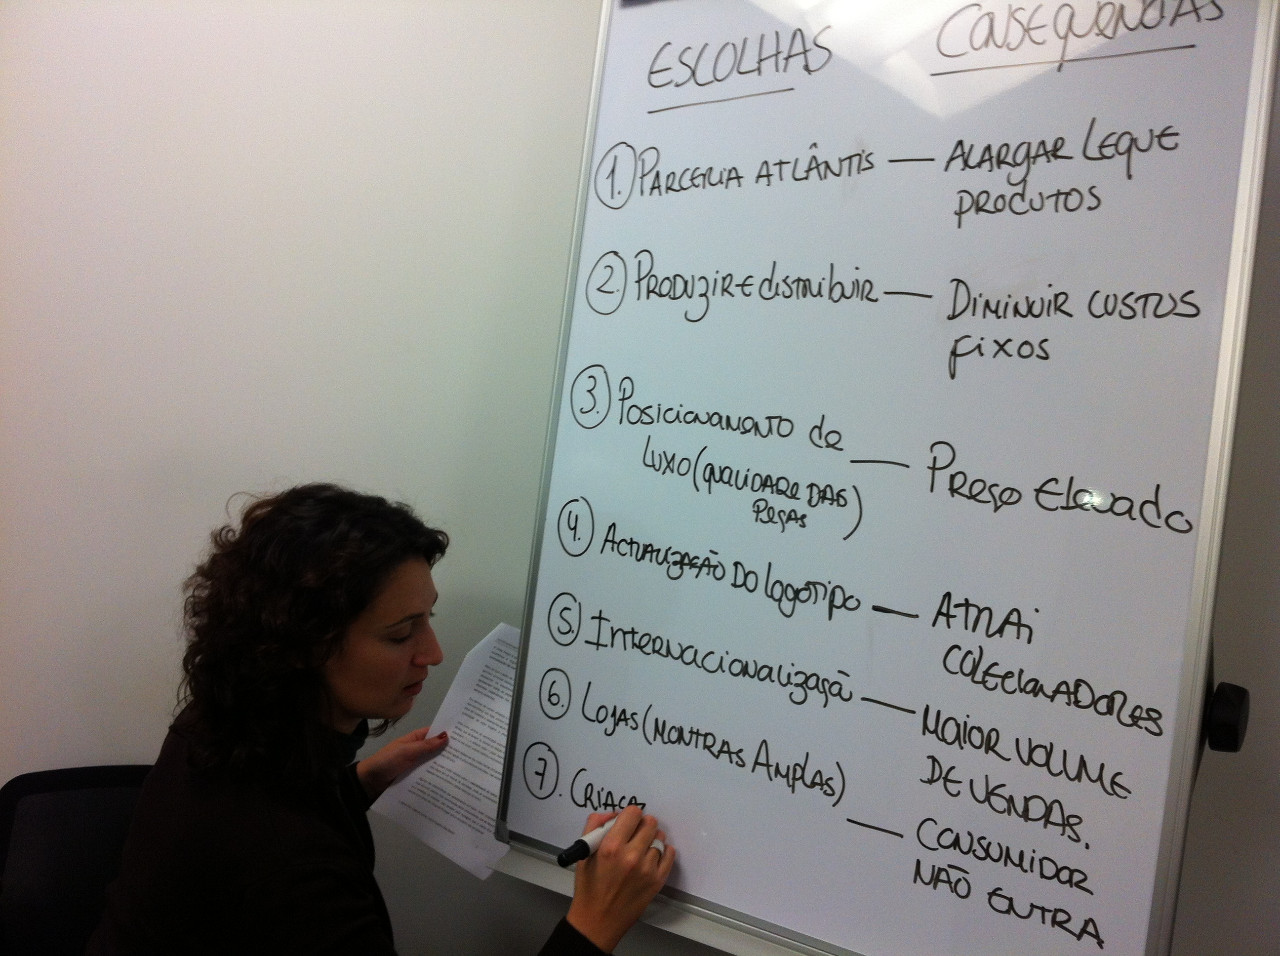 ESCOLHAS CONSEQUÊNCIAS
1. PARCERIA ATLÂNTIS — ALARGAR LEQUE
PRODUTOS
2. PRODUZIR E distribuir — DIMINUIR CUSTOS
FIXOS
3. POSICIONAMENTO de
LUXO (QUALIDADE DAS
PEÇAS) — PREÇO Elevado
4. ACTUALIZAÇÃO DO LOGÓTIPO — ATRAI
COLECIONADORES
5. INTERNACIONALIZAÇÃ — MAIOR VOLUME
DE VENDAS.
6. LOJAS (MONTRAS AMPLAS) — CONSUMIDOR
NÃO ENTRA
7. CRIAÇÃ